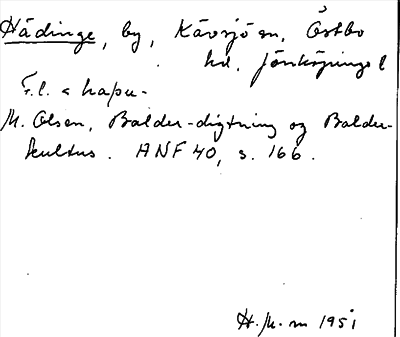 Hädinge, by, Kävsjö sn, Östbo
hd, Jönköpings l
F.l. < hapu-
M. Olsen, Balder-digtning og Balder-
kultus. ANF 40, s. 166.
H.M-m 1951